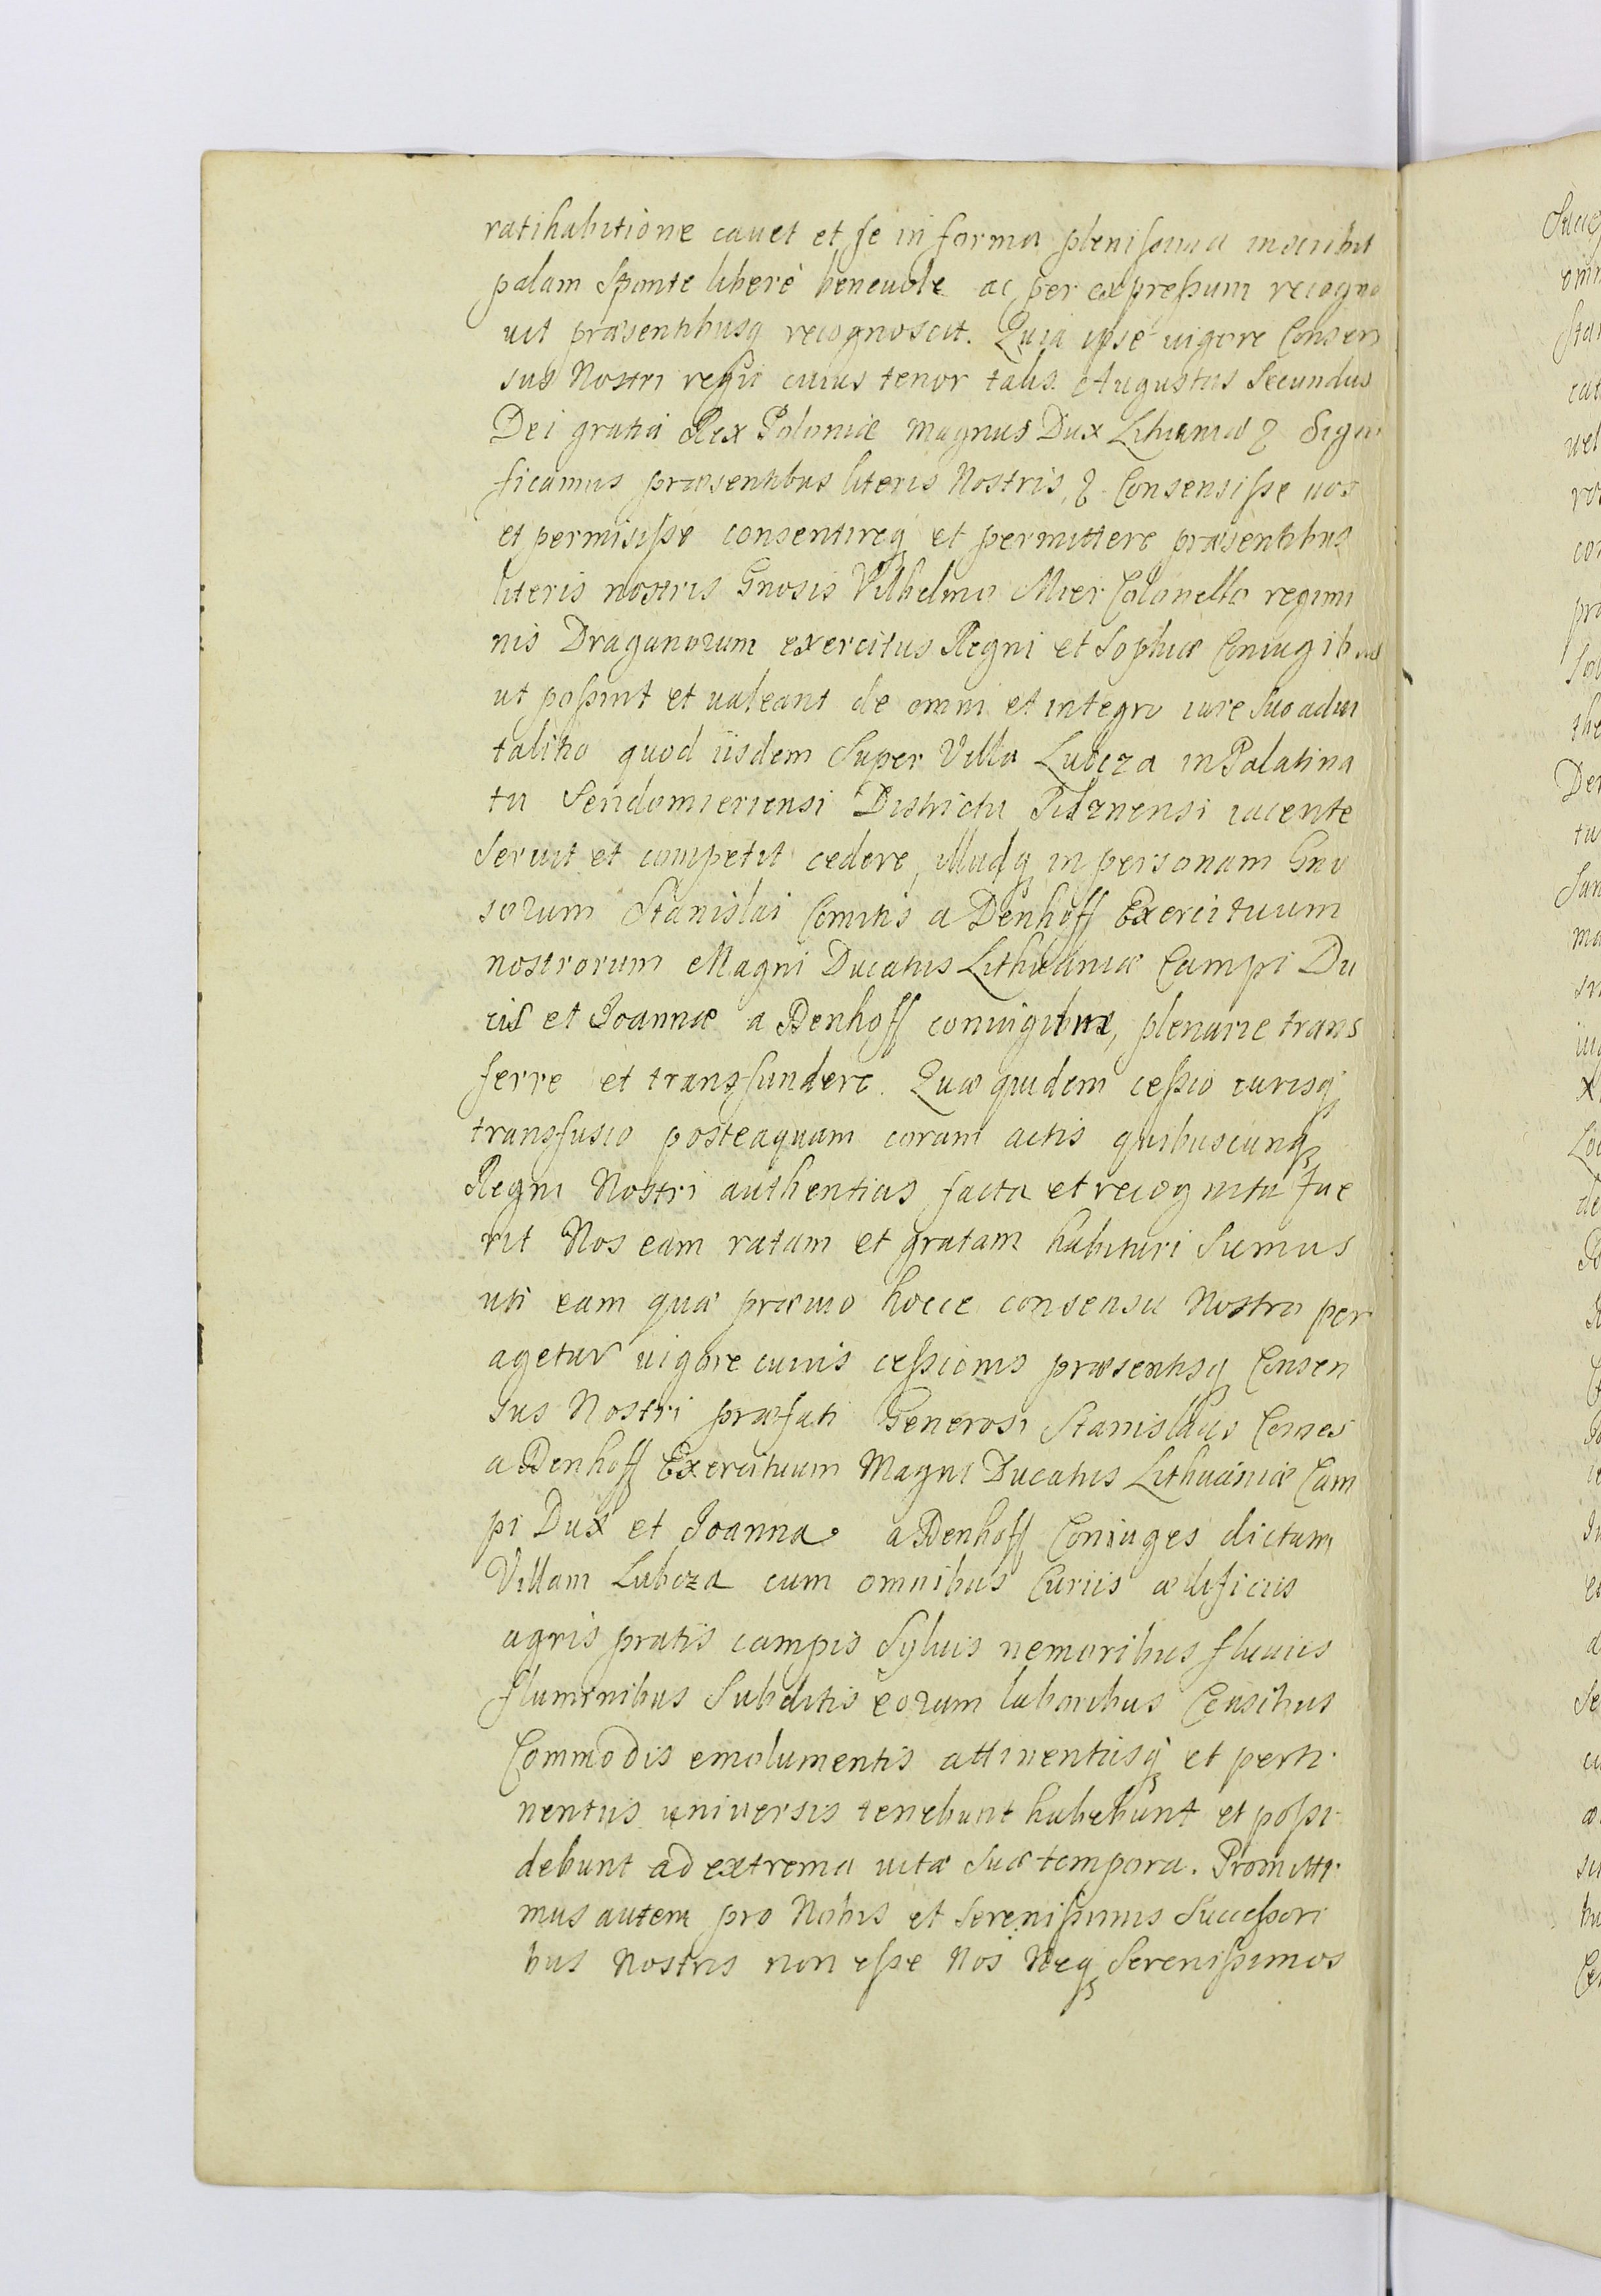 ratihabitione cavet et se in forma plenissima inscribit
palam sponte liberè benevole ac per expressum recogno
vit præsentibusq recognoscit. Quia ipse vigore Consen
sus Nostri regii cuius tenor talis. Augustus Secundus
Dei gratia Rex Poloniæ Magnus Dux Lithuaniæ & Signi
ficamus præsentibus literis Nostris, & Consensisse nos
et permisisse consentireq et permittere præsentibus
literis nostris Gnosis Vilhelmo Mier Colonello regimi
nis Draganorum exercitus Regni et Sophiæ Coniugibus
ut possint et valeant de omni et integro iure suo advi
talitio quod iisdem super Villa Lubcza in Palatina
tu Sendomieriensi Districtu Pilznensi iacente
servit et competit cedere, illudq in personam Gno
sorum Stanislai Comitis a Denhoff Exercituum
nostrorum Magni Ducatus Lithuaniæ Campi Du
cis et Joannæ a Denhoff coniugibus, plenarie trans
ferre et transfundere. Quæ quidem cessio iurisq
transfusio posteaquam coram actis quibuscunq
Regni Nostri authenticis facta et recognita fue
rit Nos eam ratam et gratam habituri sumus
uti eam quæ prævio hocce consensu Nostro per
agetur vigore cuius cessionis præsentisq Consen
sus Nostri præfati Generosi Stanislaus Comes
a Denhoff Exercituum Magni Ducatus Lithuaniæ Cam
pi Dux et Joanna a Denhoff Coniuges dictam
Villam Lubcza cum omnibus Curiis ædificiis
agris pratis campis sylvis nemoribus fluviis
fluminibus Subditis eorum laboribus Censibus
Commodis emolumentis attinentiisq et perti
nentiis universis tenebunt habebunt et possi
debunt ad extrema vitæ suæ tempora. Promitti
mus autem pro Nobis et Serenissimis Successori
bus Nostris non esse Nos Neq Serenissimos